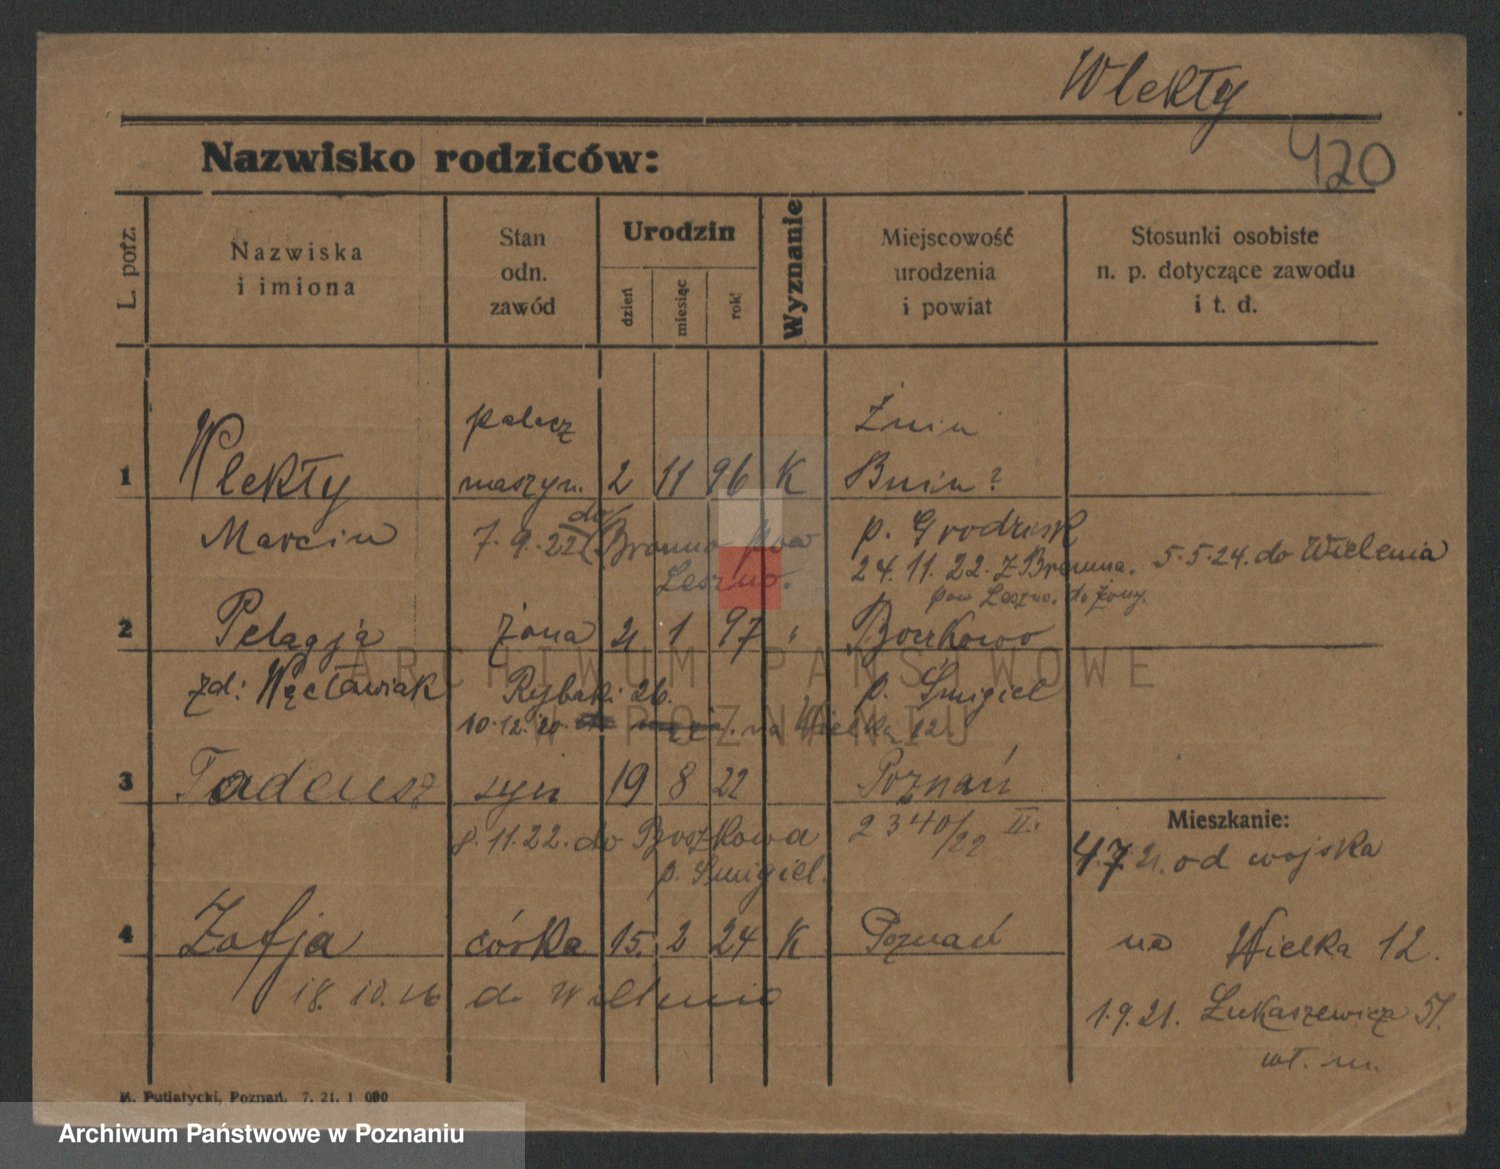 Wlekły
420
Nazwisko rodziców:
L. porz.
Nazwiska
i imiona
Stan
odn.
zawód
Urodzin
dzień
miesiąc
rok
Wyznanie
Miejscowość
urodzenia
i powiat
Stosunki osobiste
n. p. dotyczące zawodu
i t. d.
palacz Żnin
1 Wlekły maszyn. 2 11 96 K Bnin ?
Marcin 7.9.22 do Brenno pow p. Grodzisk
Leszno. 24.11.22. z Brenna. 5.5.24. do Wielenia
pow Leszno. do żony.
2 Pelagja żona 21 1 97 " Boczkowo
zd: Węcławiak Rybaki 26. p. Śmigiel
10.12.20. na Wielka 12.
3 Tadeusz syn 19 8 22 Poznań
8.11.22. do 2340/22 II.
p. Śmigiel.
Mieszkanie:
4.7.21. od wojska
4 Zofja córka 15. 2 24 K Poznań
na Wielka 12.
18.10.26 do Wielenia
1.9.21. Łukaszewicza 51.
wł. m.
M. Putiatycki, Poznań. 7. 21. 1 000
ARCHIWUM PAŃSTWOWE
W POZNANIU
Archiwum Państwowe w Poznaniu